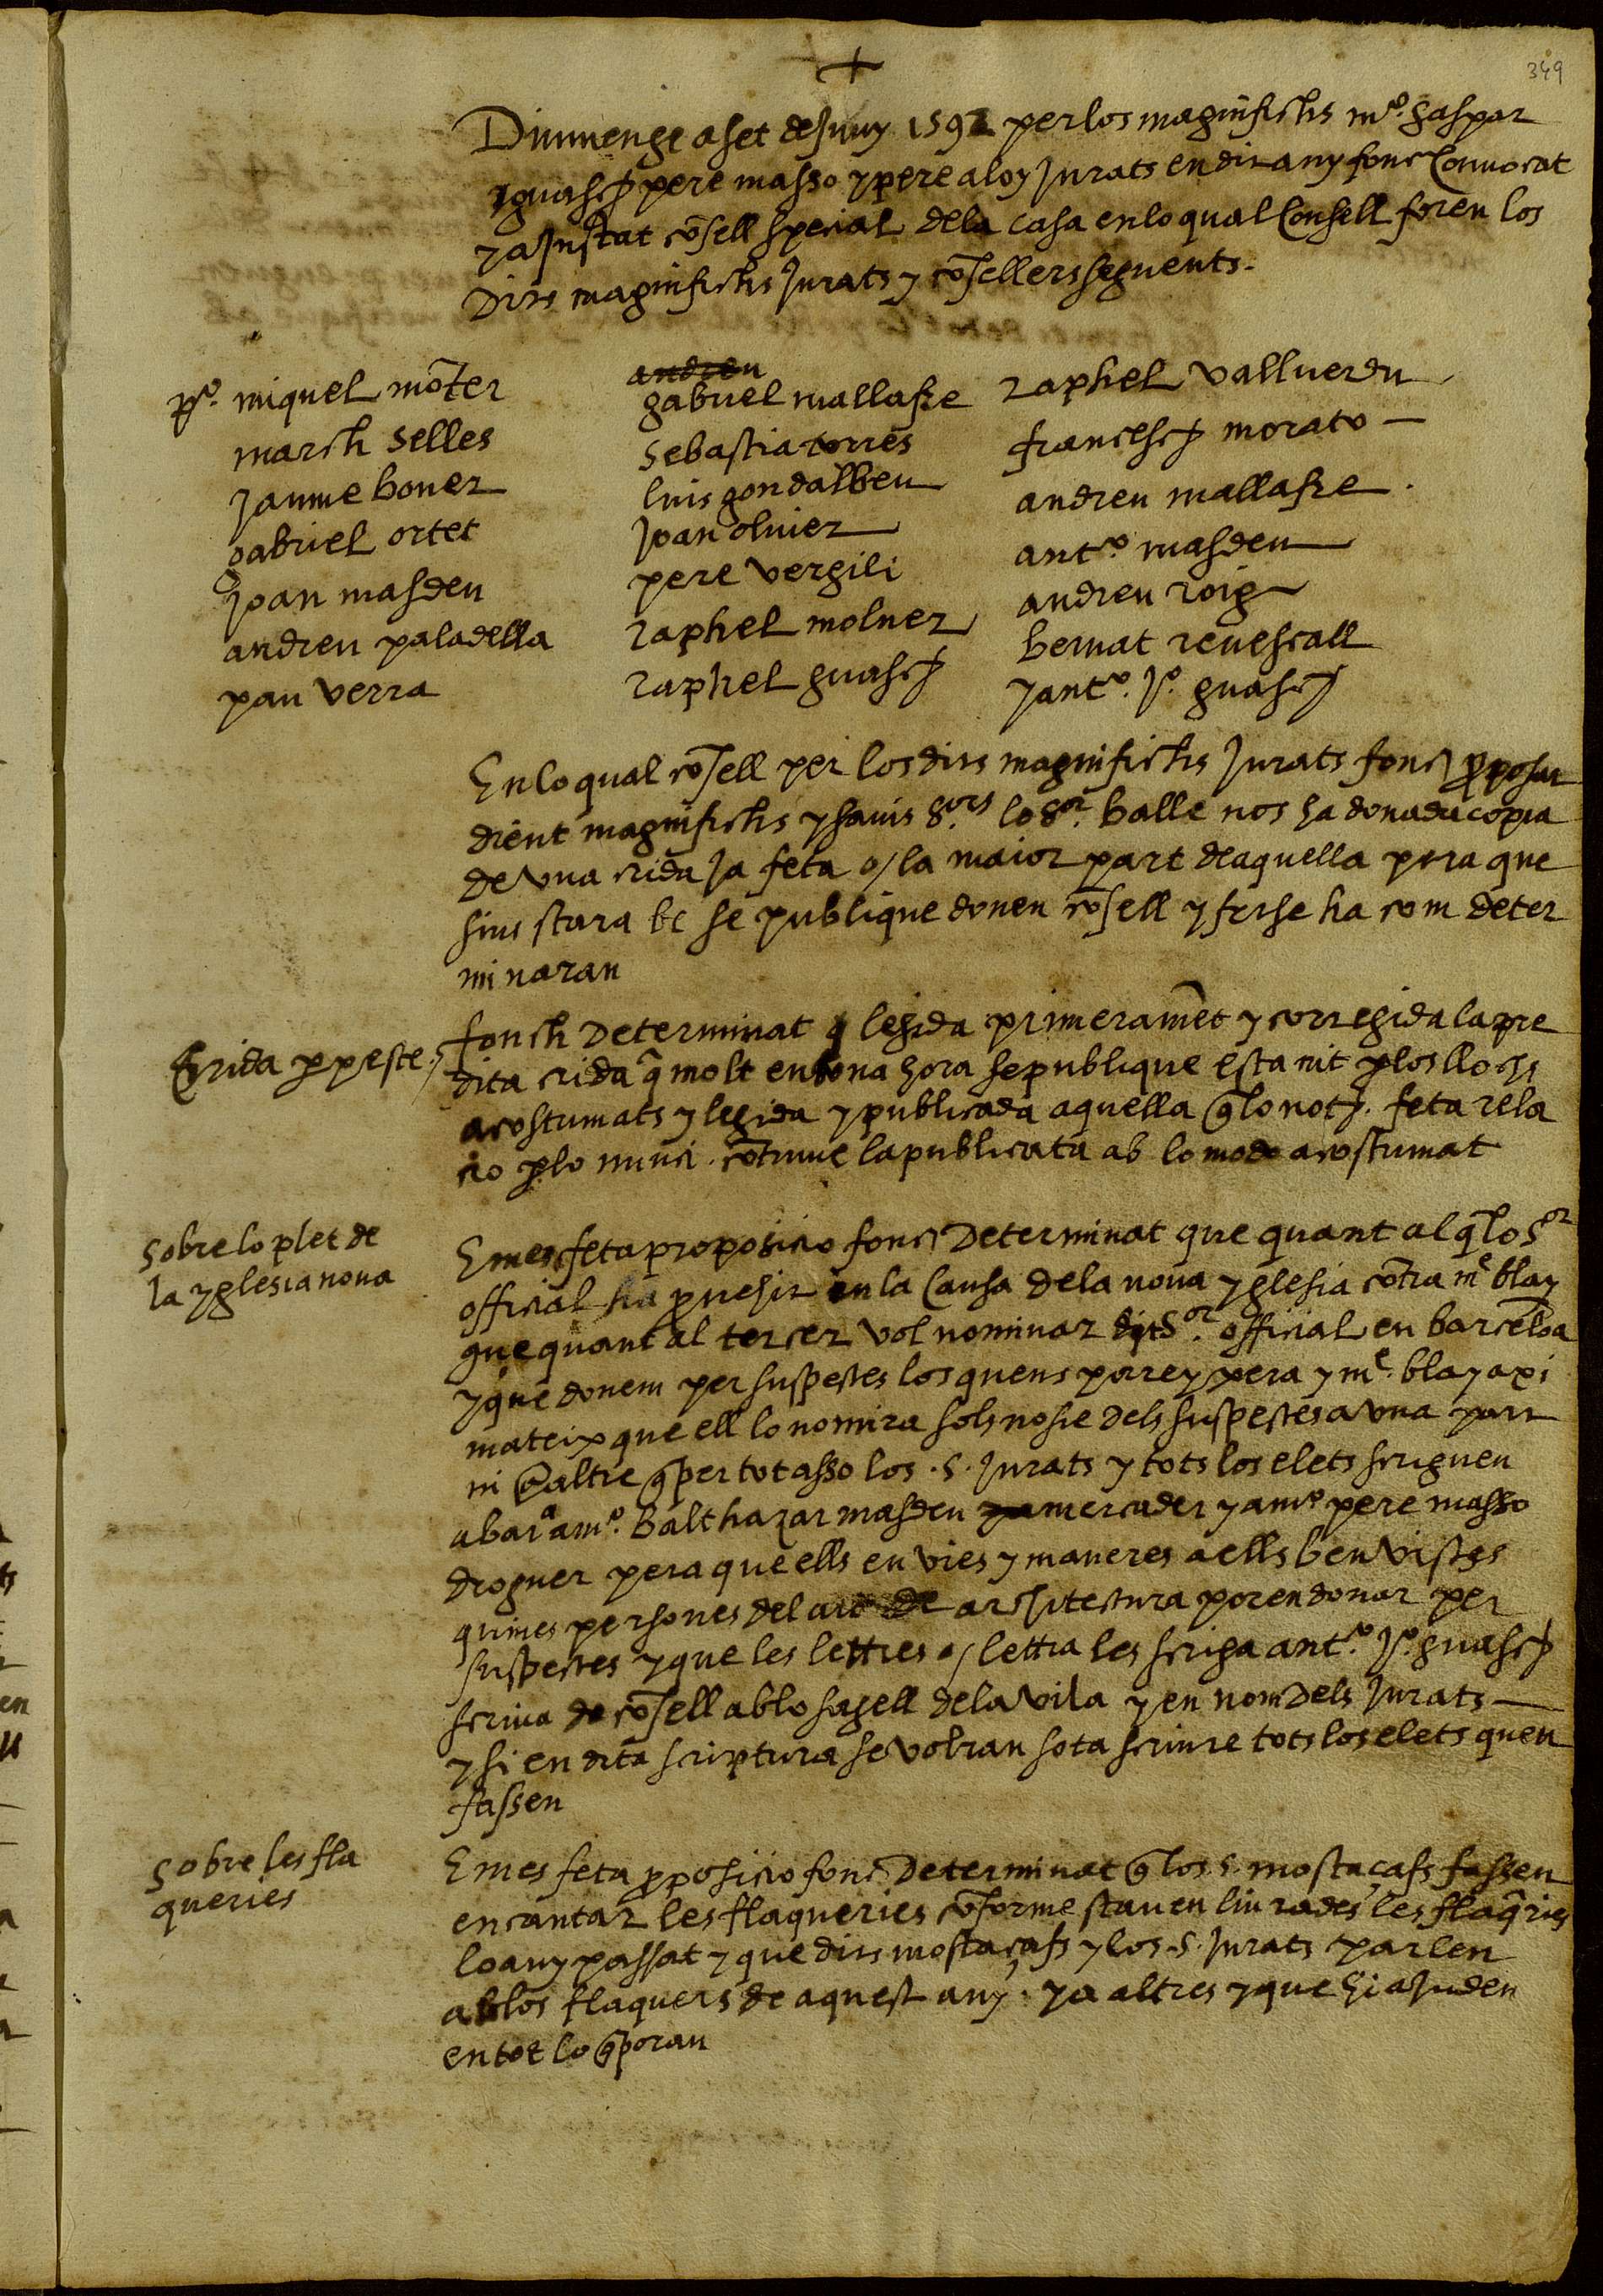 349
Diumenge a set de Juny 1592 per los magnifichs mº. gaspar
guasch pere masso y pere aloy Jurats en dit any fonc Convocat
y aJustat cõsell special de la casa en lo qual Consell foren los
Dits magnifichs Jurats y cõsellers seguents.
pº. miquel mõter
march selles
Jaume boner
gabriel ortet
Joan masdeu
andreu paladella
pau verra
andreu
gabriel mallafre
sebastia torres
luis gondalbeu
Joan oliuer
pere vergili
raphel molner
raphel guasch
raphel vallverdu
francesch morato
andreu mallafre.
antº. masdeu
andreu roig
bernat revescall
y antº. Jº. guasch
En lo qual cõsell per los dits magnifichs Jurats fonc proposat
dient magnifichs y savis s.ors lo sor. balle nos ha donada copia
de vna crida Ja feta o/ la maior part de aquella pera que
sius stara be se publique donen cõsell y ferse ha com deter
minaran
Crida per peste
fonch Determinat q legida primeramẽt y corregida la pre
dita crida q̃ molt en bona hora se publique esta nit p los llochs
acostumats y legida y publicada aquella q̃ lo not. feta rela
cio p lo nunci. cõtinue la publicata ab lo modo acostumat
Sobre lo plet de
la yglesia nova
E mes feta proposicio fonc Determinat que quant al q̃ lo sor
official ha provehit en la Causa de la nova yglesia cõtra me blay
que quant al tercer vol nominar dit sor. official en barcelona
y que donem per suspectes los quens porrey pera y me. blay axi
mateix que ell lo nomira sols no sie dels suspectes a vna part
ni @ altre q̃ per tot asso los .s. Jurats y tots los elets scriguen
a bara a mº. Balthazar masdeu mercader y a mº pere masso
droguer pera que ells en vies y maneres a ells ben vistes
quines persones del art de architectura poren donar per
suspectes y que les lettres o/ lettra les scriga antº. Jº. guasch
scriva de cõsell ab lo sagell de la vila y en nom Dels Jurats
y si en dita scriptura se volran sota scriure tots los elets queu
fassen
Sobre les fla
queries
E mes feta pposicio fonc Determinat q̃ los s. mostaçafs fassen
encantar les flaqueries cõforme stauen liurades les flaq̃ries
lo any passat y que dits mostaçafs y los .s. Jurats parlen
ab los flaquers de aquest any. y a altres y que hi aJuden
en tot lo q̃ poran